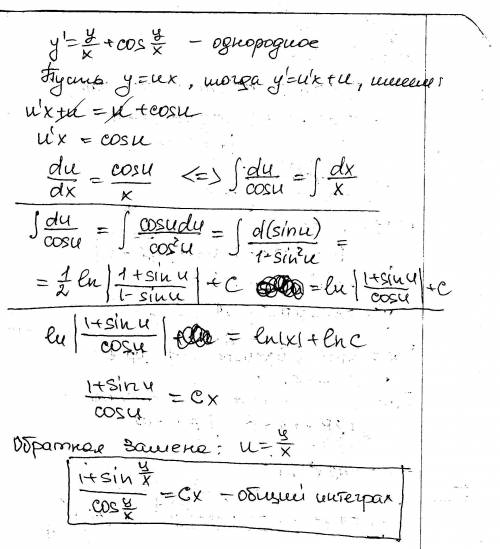 y' = y/x + cos y/x – однородное
Пусть y = ux, тогда y' = u'x + u, имеем:
u'x + u = u + cosu
u'x = cosu
du/dx = cosu/x <=> ∫ du/cosu = ∫ dx/x
∫ du/cosu = ∫ cosudu/cos²u = ∫ d(sinu)/1-sin²u =
= 1/2 ln |1+sinu/1-sinu| + C = ln |1+sinu/cosu| + C
ln |1+sinu/cosu| = ln|x| + lnC
1+sinu/cosu = Cx
Обратная замена: u = y/x
1+sin y/x / cos y/x = Cx – общий интеграл